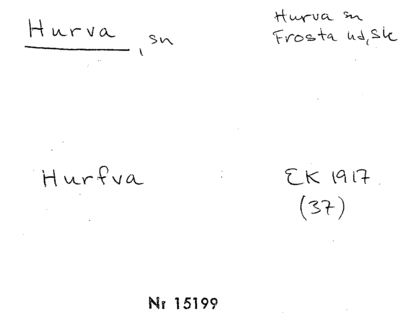 Hurva, sn
Hurva sn
Frosta hd, Sk
Hurfva
EK 1917
(37)
Nr 15199